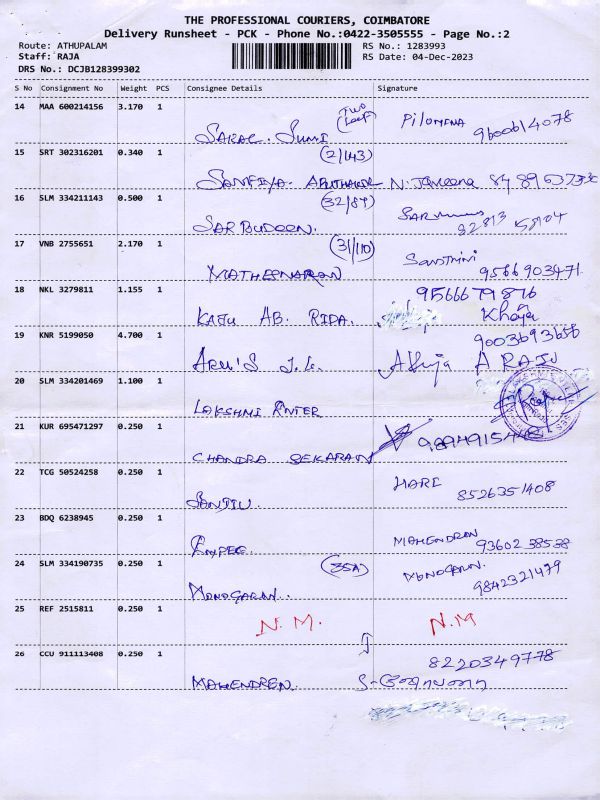 THE PROFESSIONAL COURIERS, COIMBATORE
Delivery Runsheet - PCK - Phone No.:0422-3505555 - Page No.:2
Route: ATHUPALAM RS No.: 1283993
Staff: RAJA RS Date: 04-Dec-2023
DRS No.: DCJB128399302
S No Consignment No Weight PCS Consignee Details Signature
14 MAA 600214156 3.170 1 Pilomena 9600614078
15 SRT 302316201 0.340 1 (2/143)
16 SLM 334211143 0.500 1 (32/87)
SARBUDEEN.
17 VNB 2755651 2.170 1 (31/110)
MATHEENARAN 9566903471
18 NKL 3279811 1.155 1 9566679876
KAJU AB. RIDA. Khaja
19 KNR 5199050 4.700 1 9003693656
A RAJU
20 SLM 334201469 1.100 1
LAKSHMI
21 KUR 695471297 0.250 1
CHANDRA SEKARAN
22 TCG 50524258 0.250 1 HARI 8526351408
23 BDQ 6238945 0.250 1 MAHENDRAN 9360238538
24 SLM 334190735 0.250 1 (35A)
MONOGARAN.. MONOGARAN. 9842321479
25 REF 2515811 0.250 1 N.M. N.M
26 CCU 911113408 0.250 1 8220349778
MAHENDREN.